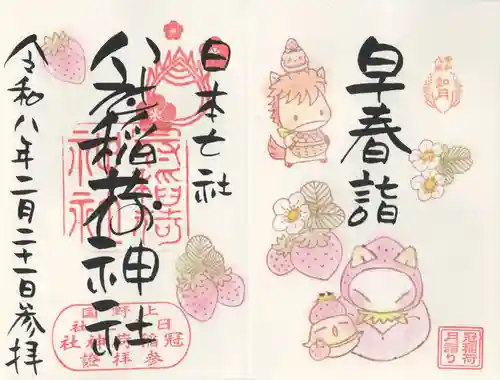 早春詣
如月
冠稲荷
月詣り
日本七社
冠稲荷神社
令和八年二月二十一日参拝
上野国
日本七社
冠稲荷神社
参拝證